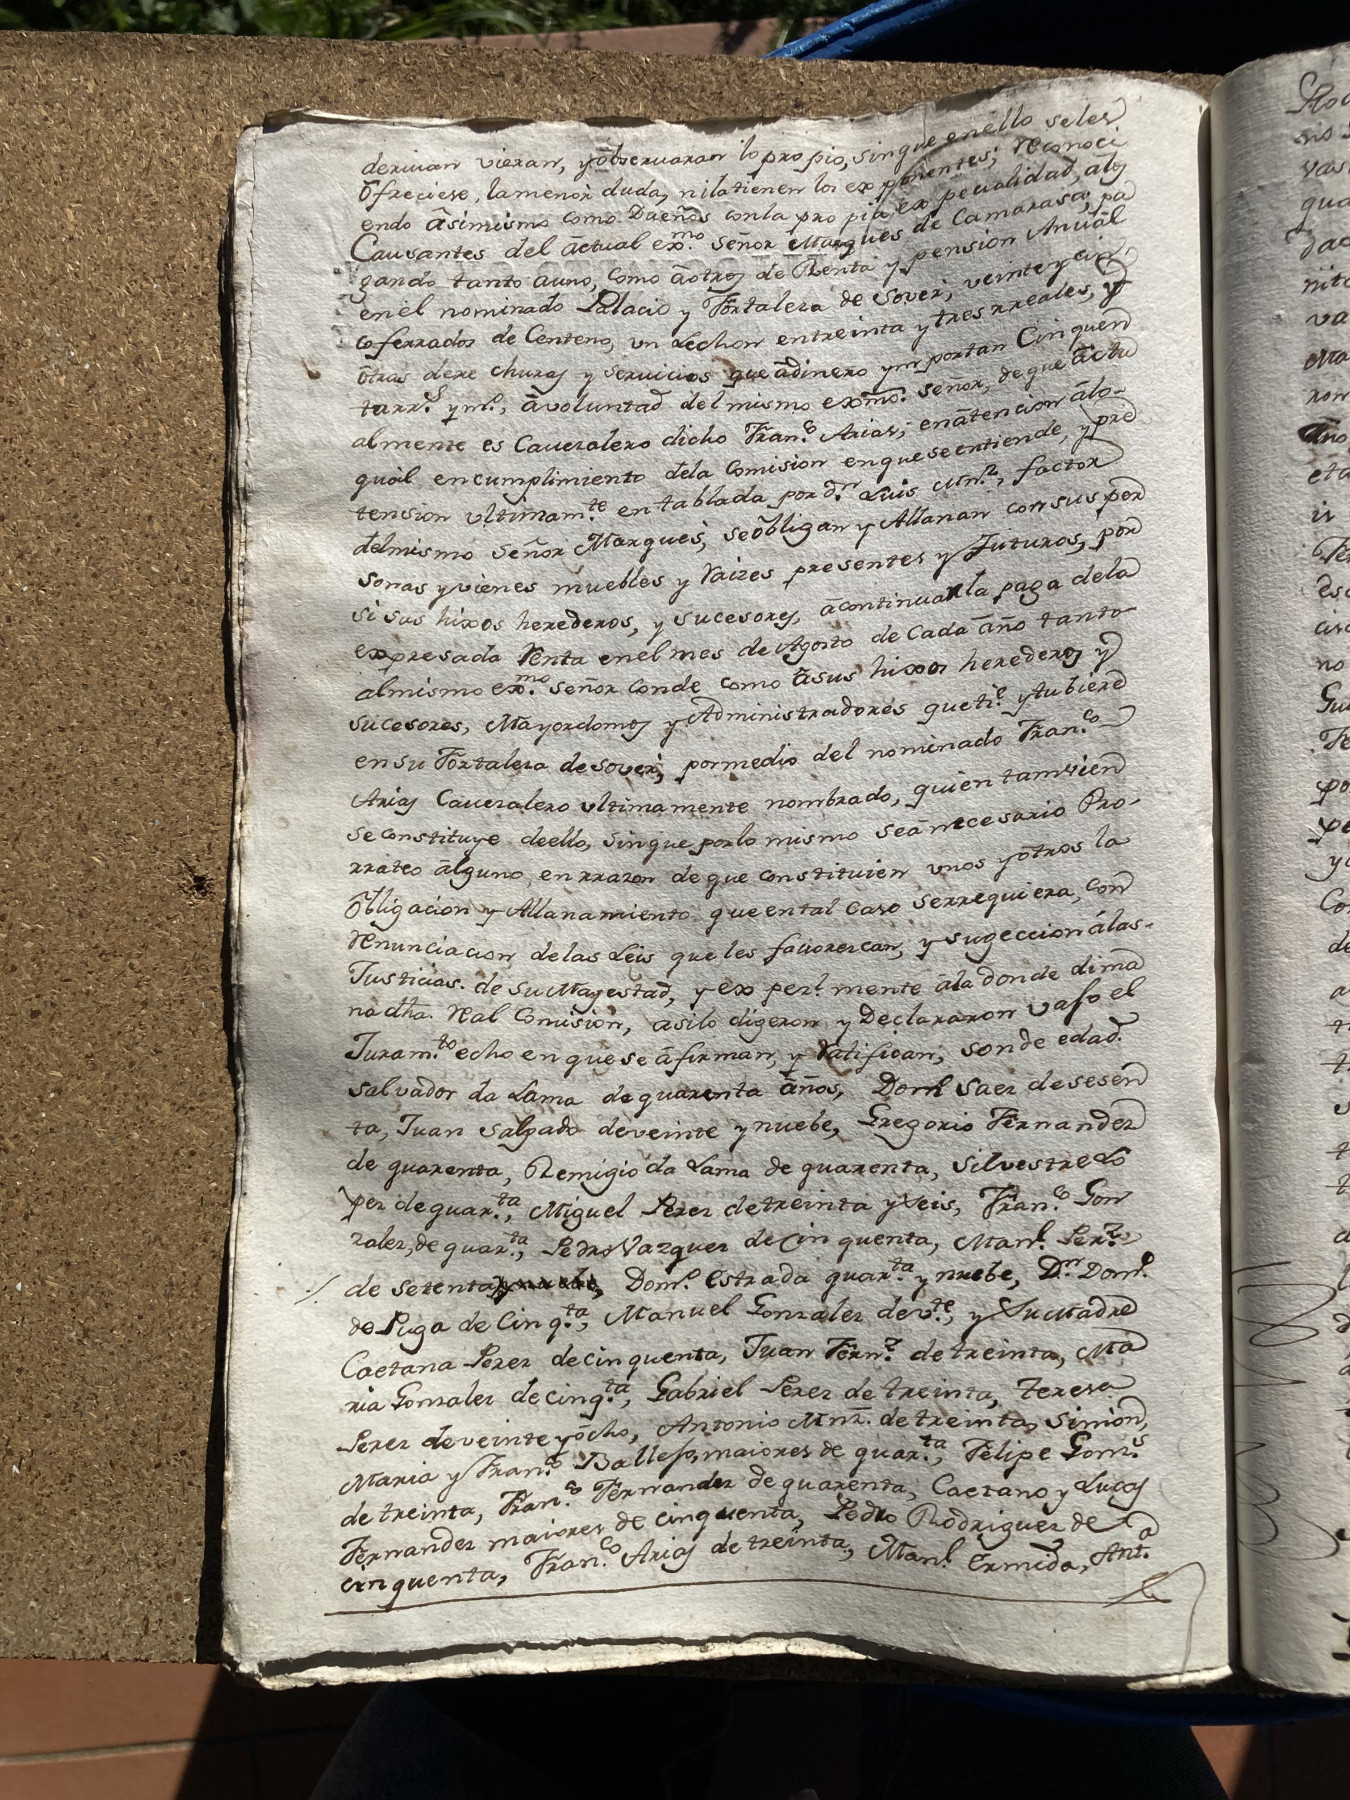 derivan vieran, y observaran lo propio, sin que en ello se les
ofreciese, la menor duda, ni la tienen los exponentes; reconoci
endo asimismo como Dueños con la propia expecialidad, alos
Causantes del actual exmo. señor Marques de Camarasa; pa
gando tanto auno, como aotros de Renta y pension Anual
en el nominado Palacio y Fortaleza de Sover, veinte y cin
co ferrados de Centeno, un Lechon en treinta y tres rreales, y
otras derechuras y servicios que adinero ymportan Cinquen
ta rrs. y ms., a voluntad del mismo exmo. señor, de que actu
almente es Caveralero dicho Franco. Arias; en atencion alo-
qual en cumplimiento dela Comision en que se entiende, y pre
tension ultimamte. entablada por dn. Luis Mnz., factor
del mismo Señor Marques, se obligan y Allanan con sus per
sonas y vienes muebles y raizes presentes y futuros, por
si sus hixos herederos, y sucesores, a continuar la paga dela
expresada renta en el mes de Agosto de Cada año tanto
al mismo exmo. señor conde como asus hixos herederos y
sucesores, Mayordomos y Administradores que tie. y tubiere
en su Fortaleza de sover, por medio del nominado Franco.
Arias Caveralero ultimamente nombrado, quien tamvien
se constituye de ello, sin que por lo mismo sea necesario Pro-
rrateo alguno, en rrazon de que constituien unos y otros la
obligacion y Allanamiento que en tal Caso se rrequiera, con
renunciacion de las Leis que les favorezcan, y sugeccion álas-
Justicias. de su Magestad, y expezl.mente ála donde dima
na dha. real Comision, asi lo digeron y Declararon vajo el
Juramto. echo en que se afirman, y ratifican; son de edad.
salvador da Lama de quarenta años, Domo. Saez de sesen
ta, Juan Salgado de veinte y nuebe, Gregorio Fernandez
de quarenta, Remigio da Lama de quarenta, Silvestre Lo
pez de quarta., Miguel Perez de treinta y seis, Franco. Gon
zalez, de quarta., Pedro Vazquez de Cinquenta, Manl. Perz.
de setenta, Domo. Estrada quarta. y nuebe, Dn. Domo.
de Puga de Cinqta., Manuel Gonzalez de vte., y su Madre
Caetana Perez de cinquenta, Juan Fernz. de treinta, Ma
ria Gonzalez de cinqta., Gabriel Perez de treinta, Teresa
Perez de veinte y ocho, Antonio Mnz. de treinta, Simon,
Maria y Franco. Vallejo, maiores de quarta., Felipe Goms.
de treinta, Franco. Fernandez de quarenta, Caetano y Lucas
Fernandez maiores de cinquenta, Pedro Rodriguez de
cinquenta, Franco. Arias de treinta, Manl. Ermida, Anta.